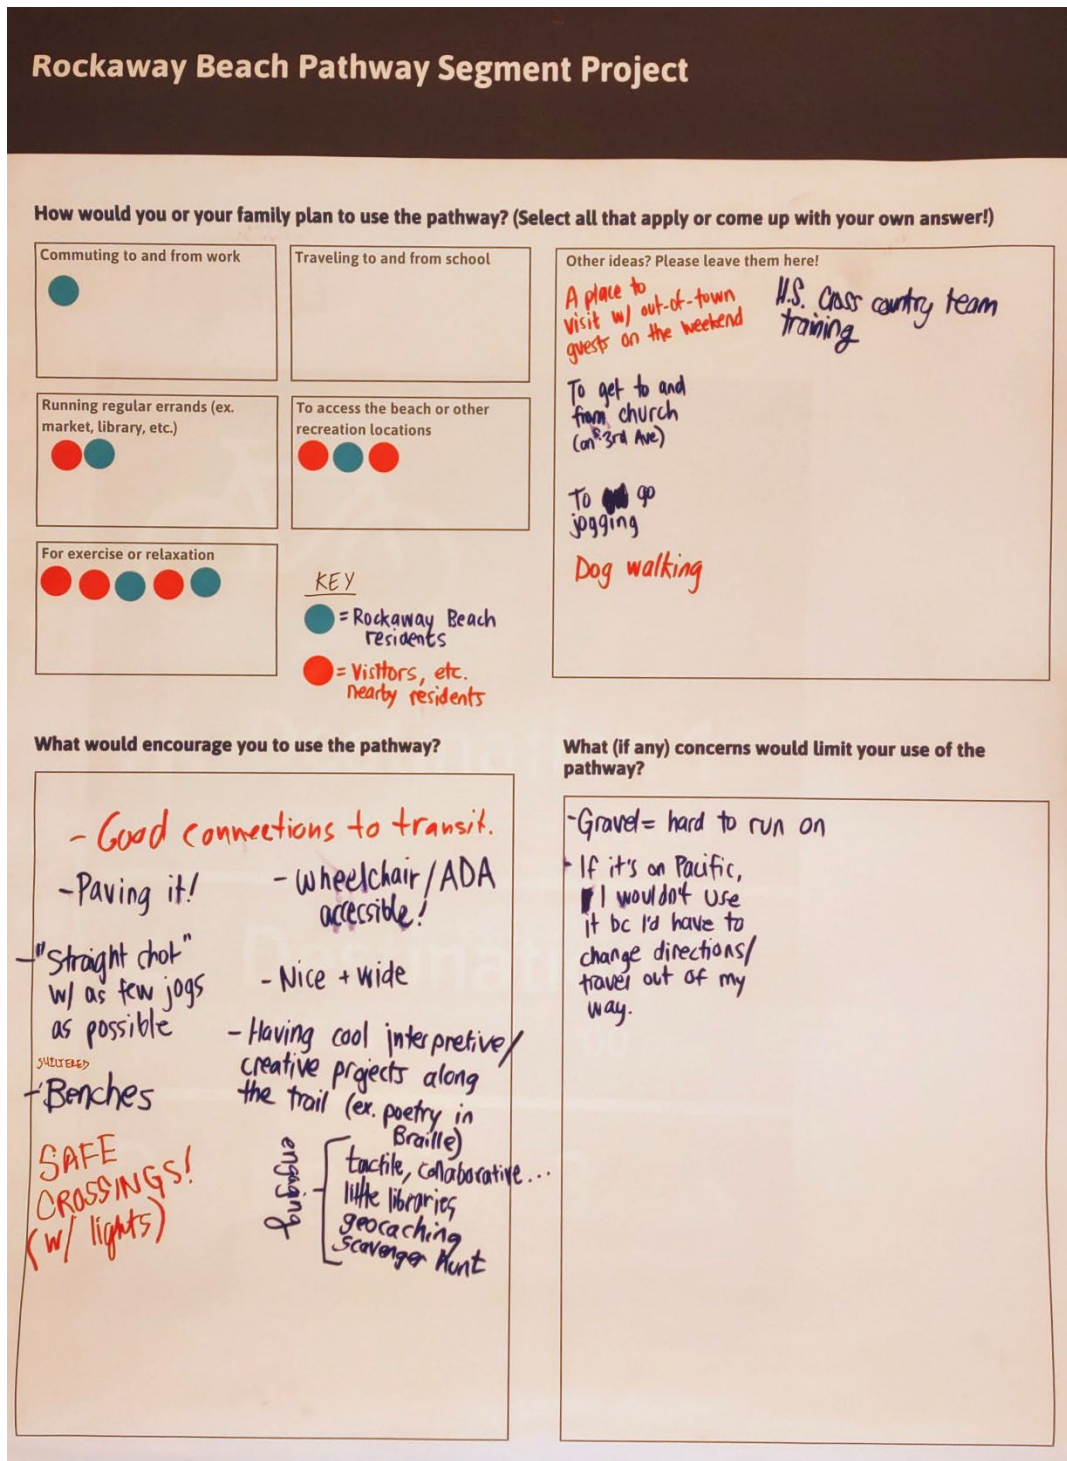 Rockaway Beach Pathway Segment Project
How would you or your family plan to use the pathway? (Select all that apply or come up with your own answer!)
Commuting to and from work
Traveling to and from school
Running regular errands (ex.
market, library, etc.)
To access the beach or other
recreation locations
For exercise or relaxation
KEY
= Rockaway Beach
residents
= Visitors, etc.
nearby residents
Other ideas? Please leave them here!
A place to
visit w/ out-of-town
guests on the weekend
H.S. Cross country team
training
To get to and
from church
(on 3rd Ave)
To go
jogging
Dog walking
What would encourage you to use the pathway?
- Good connections to transit.
- Paving it!
- wheelchair/ADA
accessible!
- "Straight shot"
w/ as few jogs
as possible
- Nice + wide
SHELTERED
- Benches
- Having cool interpretive/
creative projects along
the trail (ex. poetry in
Braille)
engaging
tactile, collaborative...
little libraries
geocaching
scavenger hunt
SAFE
CROSSINGS!
(w/ lights)
What (if any) concerns would limit your use of the
pathway?
- Gravel = hard to run on
- If it's on Pacific,
I wouldn't use
it bc I'd have to
change directions/
travel out of my
way.